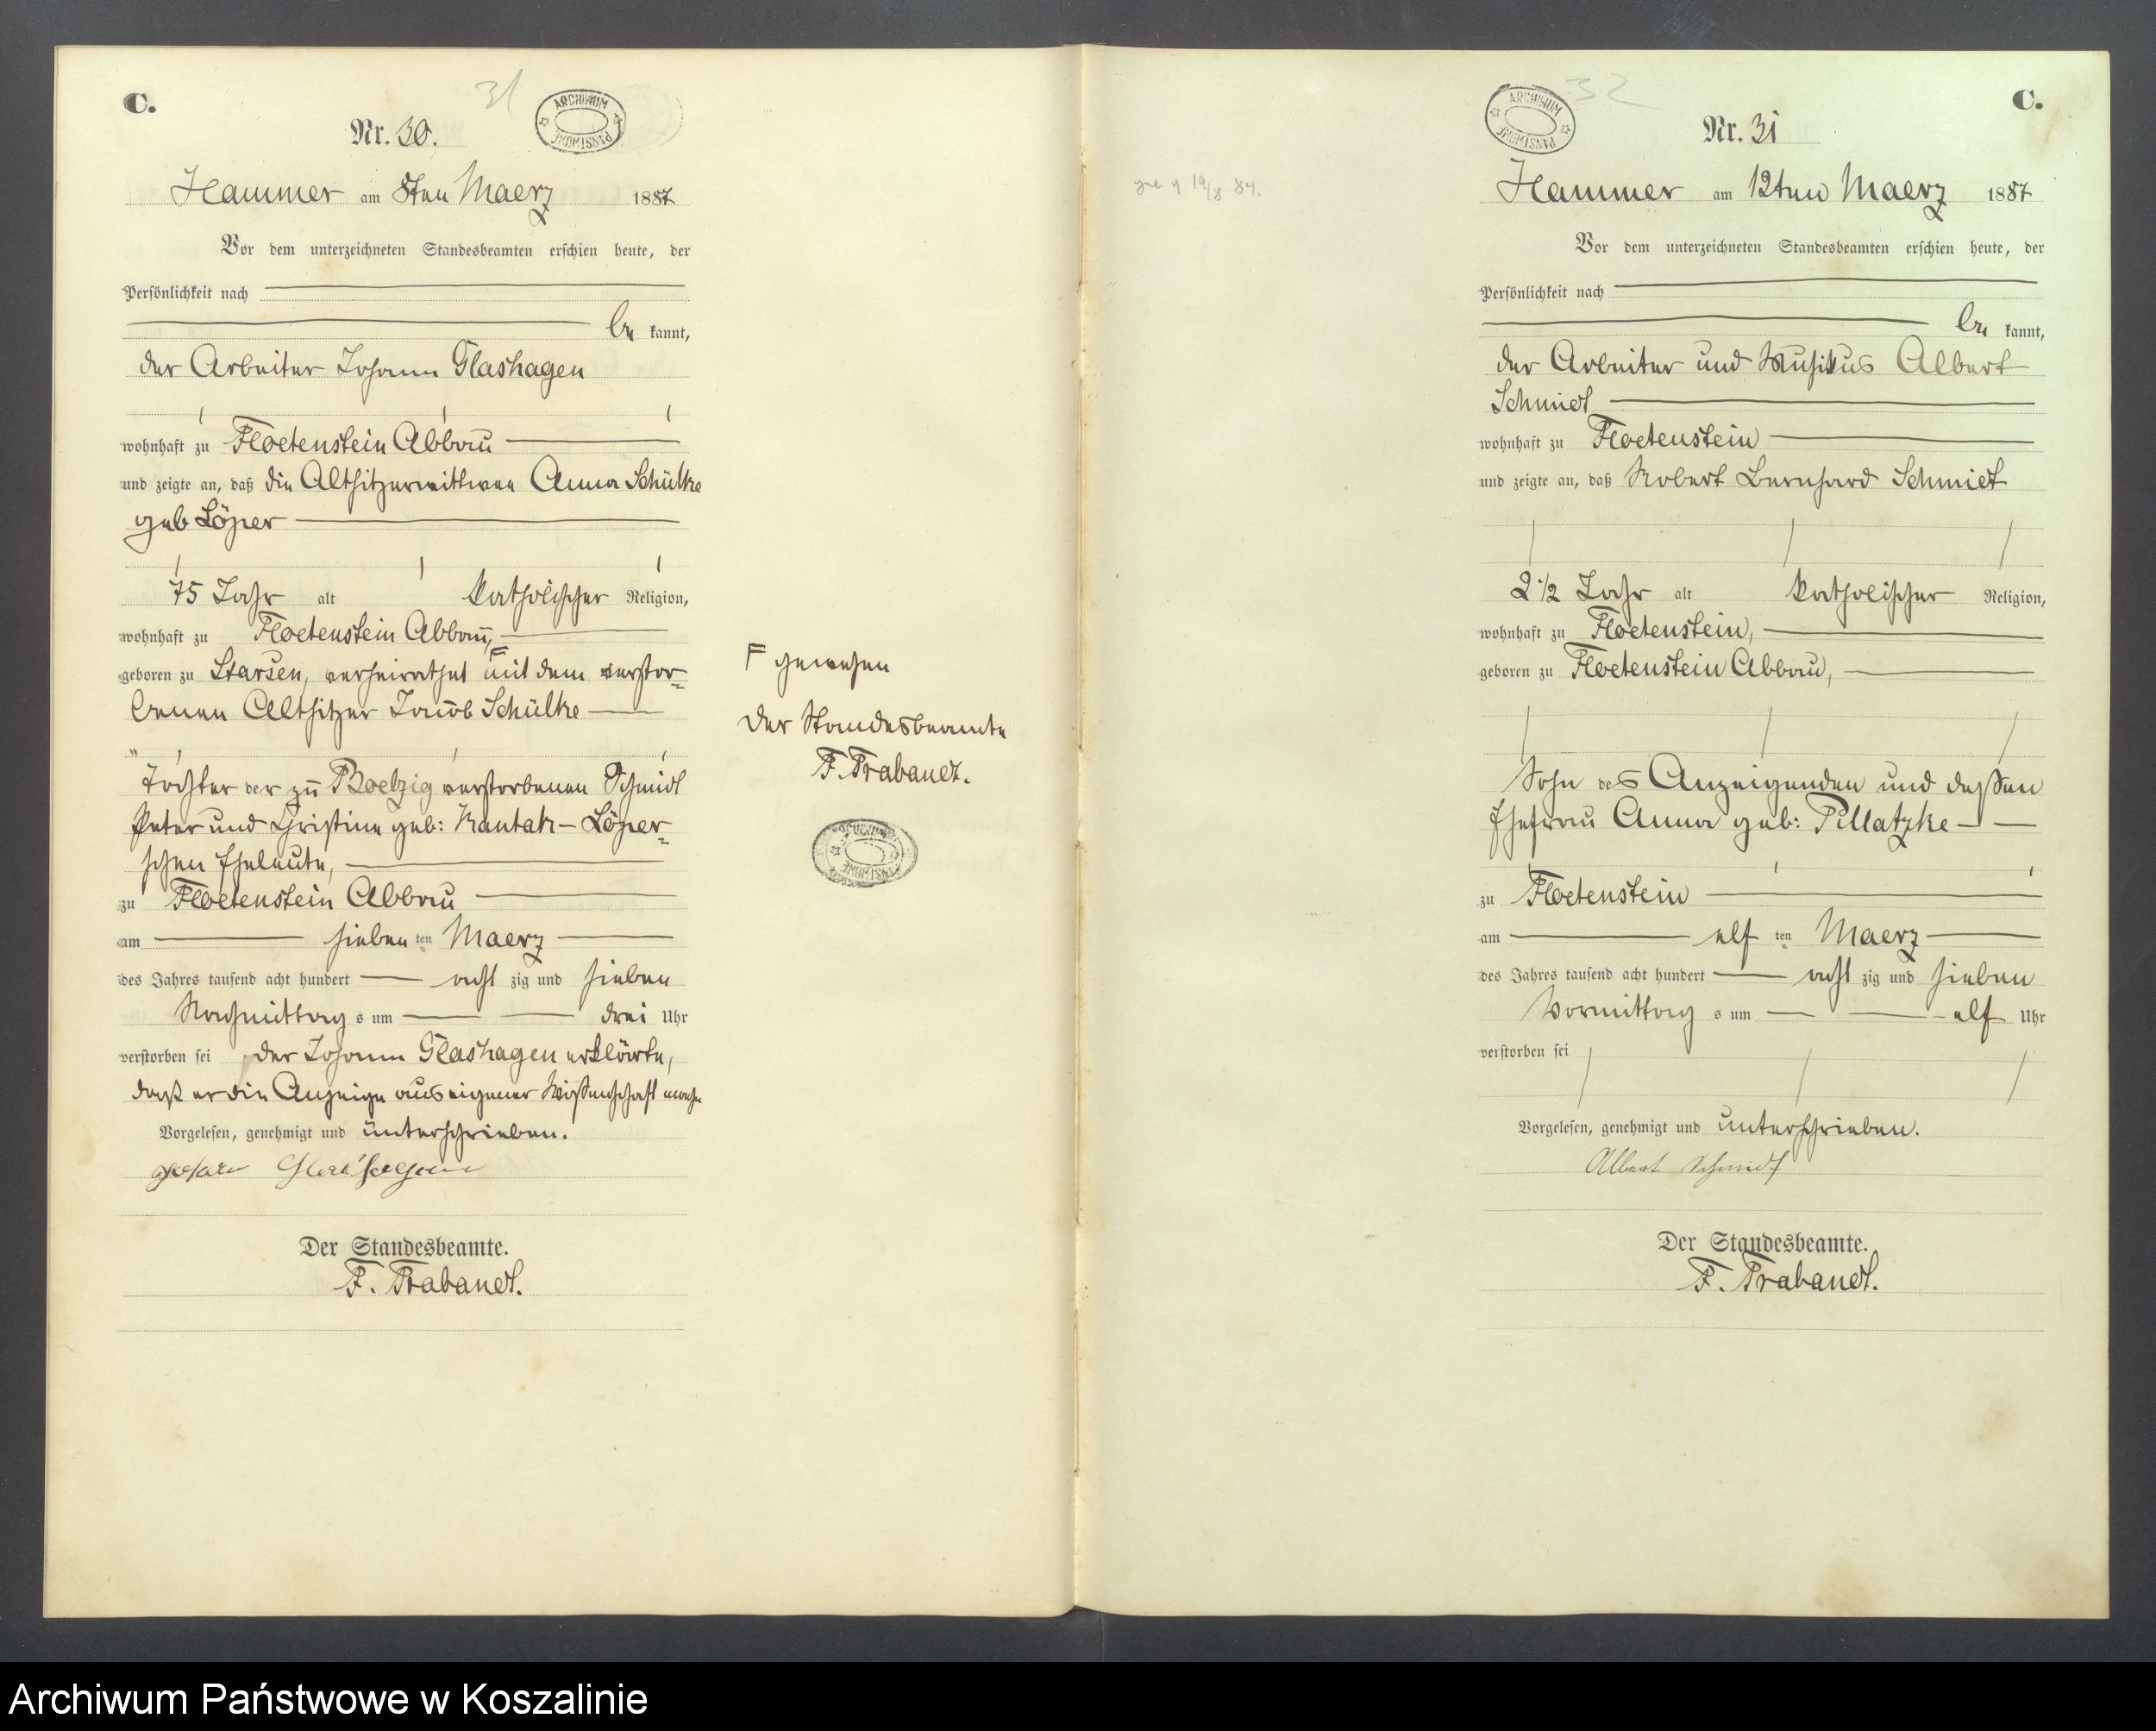 C.
31
ARCHIWUM PAŃSTWOWE
Nr. 30.
Hammer am 8ten Maerz 1887
Vor dem unterzeichneten Standesbeamten erschien heute, der
Persönlichkeit nach
be kannt,
der Arbeiter Johann Glashagen
wohnhaft zu Floetenstein Abbau
und zeigte an, daß die Altsitzerwittwee Anna Schülke
geb Löper
75 Jahr alt katholischer Religion,
wohnhaft zu Floetenstein Abbau,
geboren zu Starsen, verheirathet mit dem verstor=
benen Altsitzer Jacob Schülke
Tochter der zu Boelzig verstorbenen Schmidt
Peter und Christine geb: Kantak - Löper=
schen Eheleute,
zu Floetenstein Abbau
am sieben ten Maerz
des Jahres tausend acht hundert acht zig und sieben
Nachmittag s um drei Uhr
verstorben sei, der Johann Glashagen erklärte,
daß er die Anzeige aus eigener Wissenschaft mache
Vorgelesen, genehmigt und unterschrieben.
Johann Glashagen
Der Standesbeamte.
F. Trabandt.
F gewesen
Der Standesbeamte
F. Trabandt.
ARCHIWUM PAŃSTWOWE
19/8 87.
ARCHIWUM PAŃSTWOWE
32
C.
Nr. 31
Hammer am 12ten Maerz 1887
Vor dem unterzeichneten Standesbeamten erschien heute, der
Persönlichkeit nach
be kannt,
der Arbeiter und Musikus Albert
Schmidt
wohnhaft zu Floetenstein
und zeigte an, daß Robert Bernhard Schmidt
2 1/2 Jahr alt katholischer Religion,
wohnhaft zu Floetenstein,
geboren zu Floetenstein Abbau,
Sohn des Anzeigenden und dessen
Ehefrau Anna geb: Pillatzke
zu Floetenstein
am elf ten Maerz
des Jahres tausend acht hundert acht zig und sieben
Vormittag s um elf Uhr
verstorben sei
Vorgelesen, genehmigt und unterschrieben.
Albert Schmidt
Der Standesbeamte.
F. Trabandt.
Archiwum Państwowe w Koszalinie